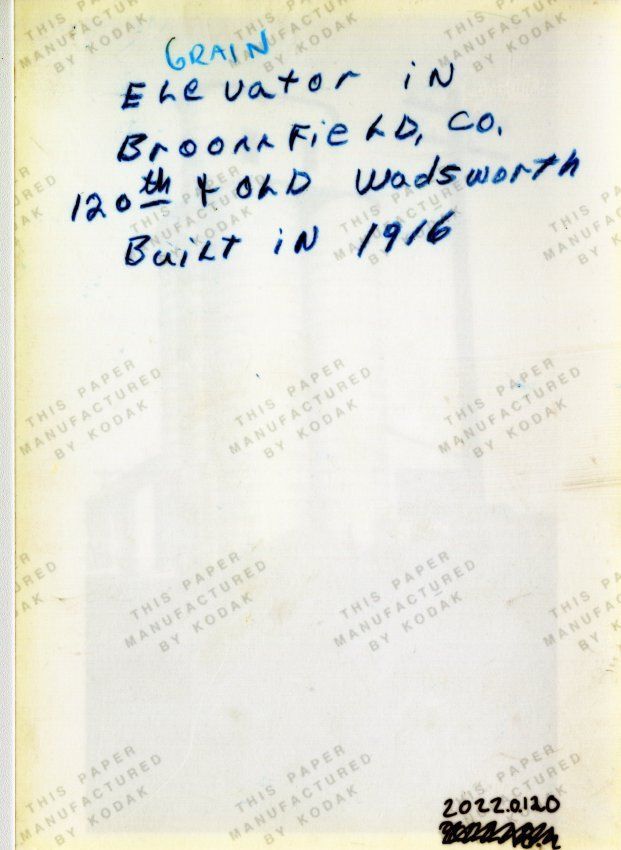 GRAIN
Elevator in
Broomfield, CO.
120th & Old Wadsworth
Built in 1916
THIS PAPER
MANUFACTURED
BY KODAK
2022.0120